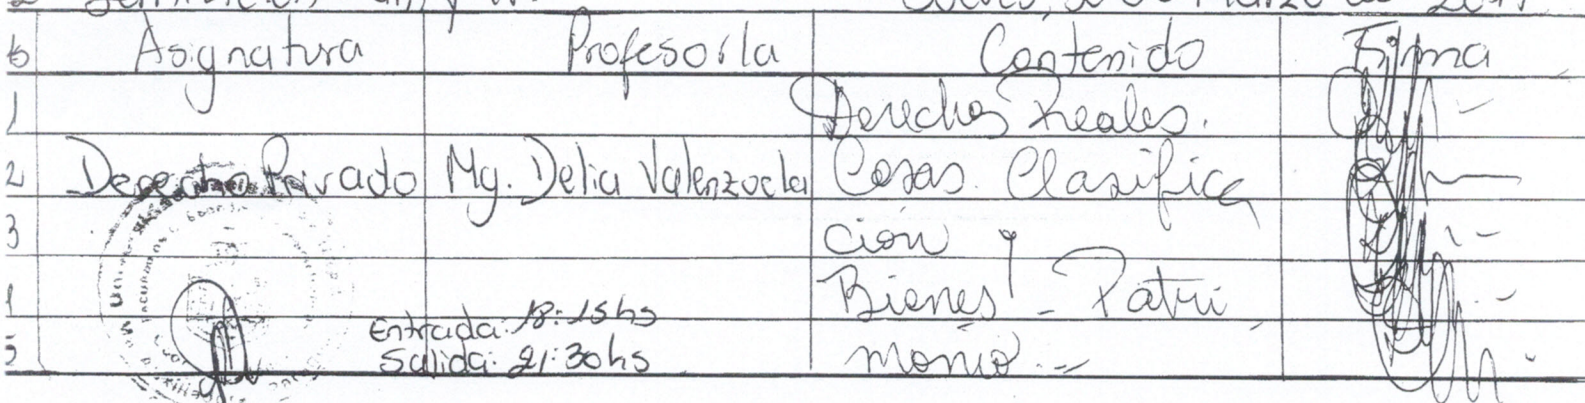 Marzo de
Asignatura Profesor/la Contenido Firma
1 Derechos Reales.
2 Derecho Privado Mg. Delia Valenzuela Cosas. Clasifica
3 ción y
Bienes - Patri
Entrada: 18:15hs
5 Salida: 21:30hs monio.--